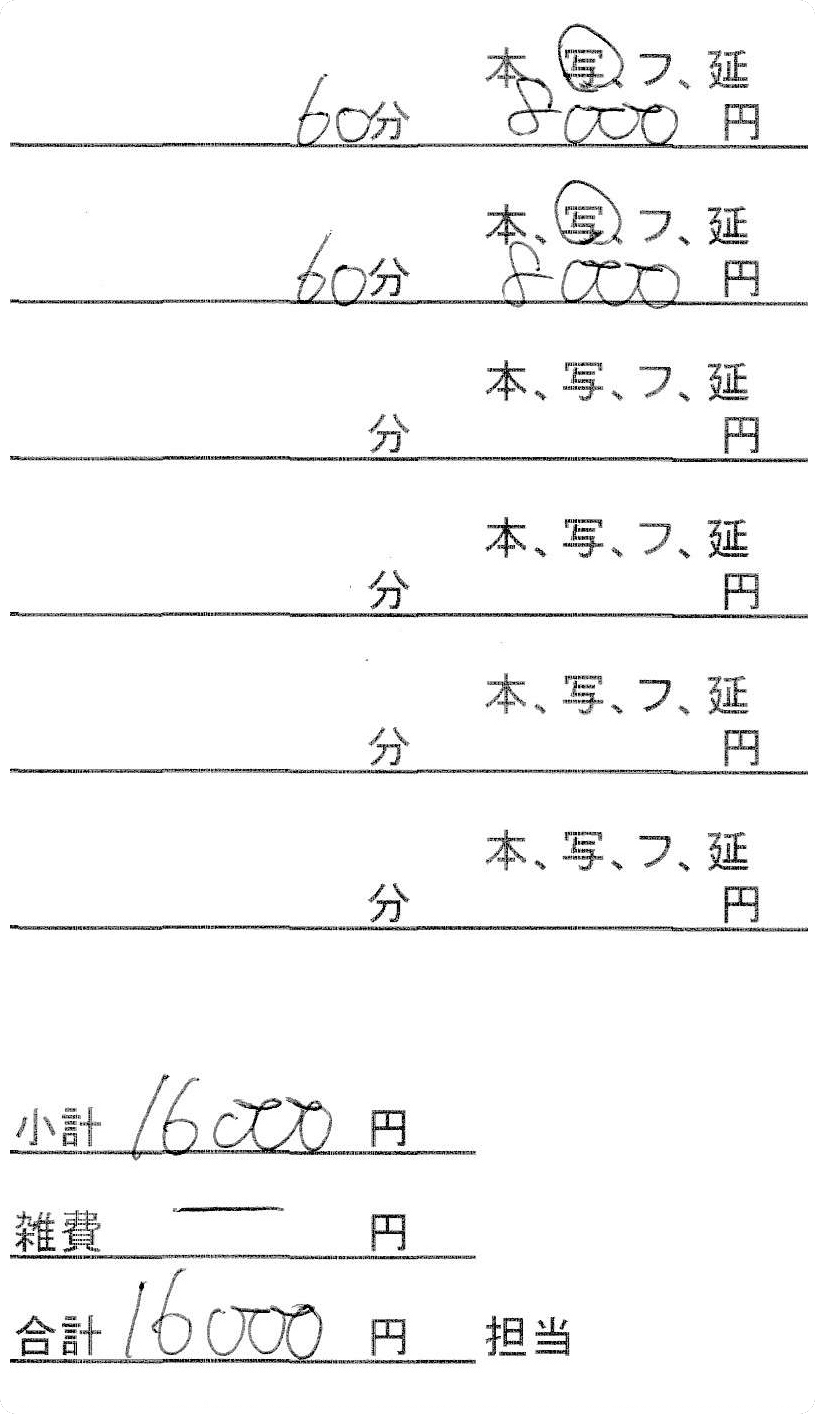 本、写、フ、延
60分 8000円
本、写、フ、延
60分 8000円
本、写、フ、延
分 円
本、写、フ、延
分 円
本、写、フ、延
分 円
本、写、フ、延
分 円
小計 16000 円
雑費 — 円
合計 16000 円 担当